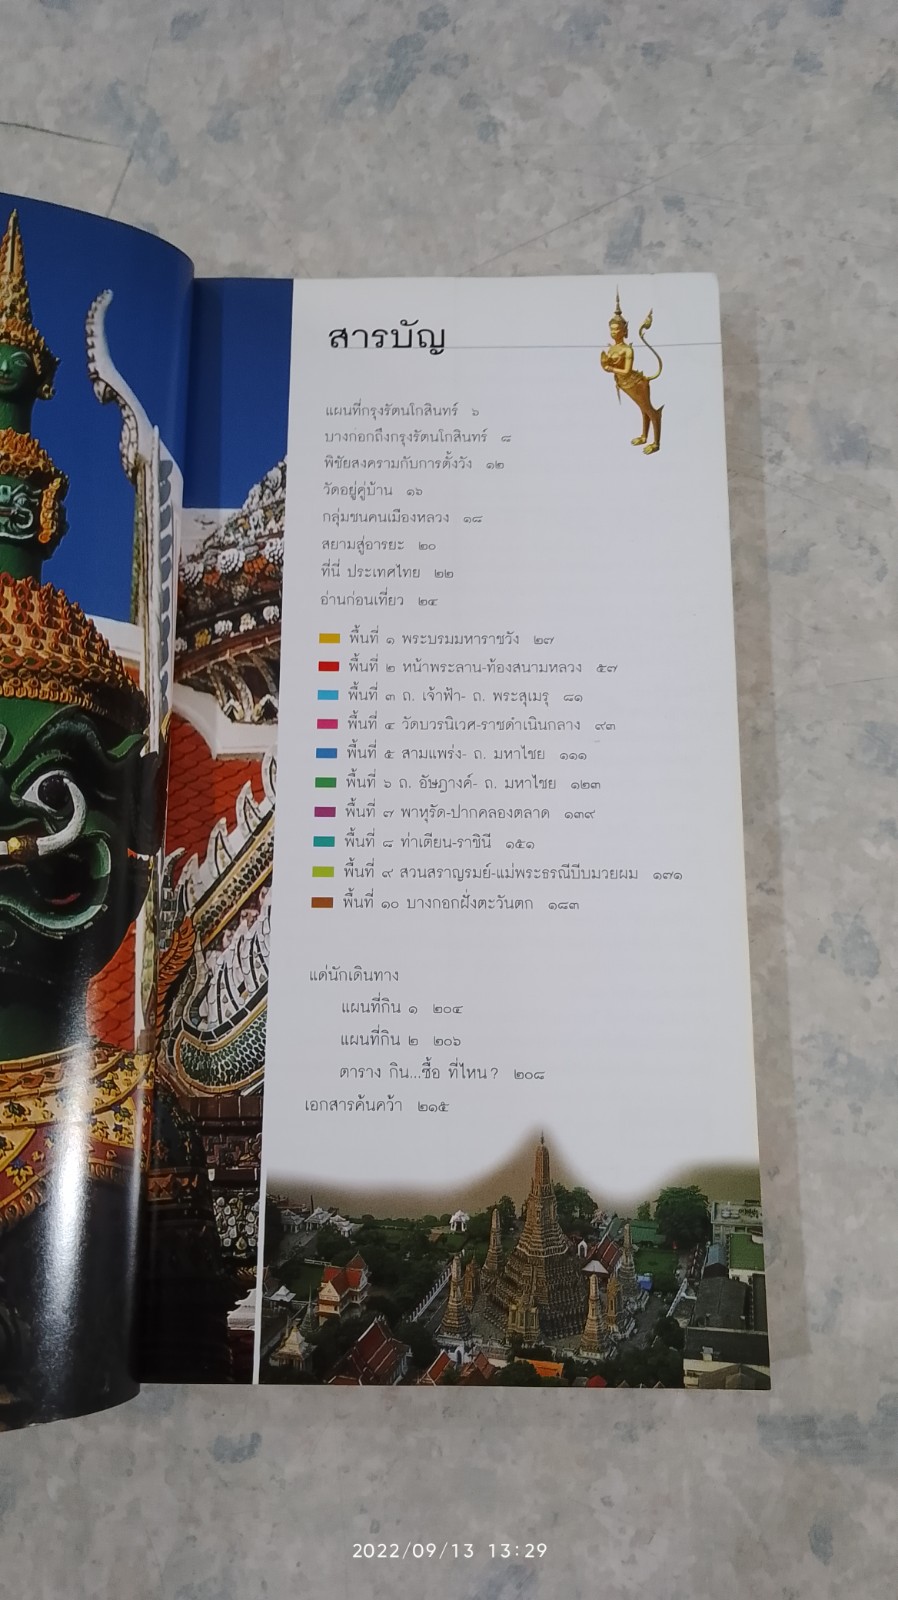 สารบัญ
แผนที่กรุงรัตนโกสินทร์ ๖
บางกอกถึงกรุงรัตนโกสินทร์ ๘
พิชัยสงครามกับการตั้งวัง ๑๒
วัดอยู่คู่บ้าน ๑๖
กลุ่มชนคนเมืองหลวง ๑๘
สยามสู่อารยะ ๒๐
ที่นี่ ประเทศไทย ๒๒
อ่านก่อนเที่ยว ๒๔
พื้นที่ ๑ พระบรมมหาราชวัง ๒๗
พื้นที่ ๒ หน้าพระลาน-ท้องสนามหลวง ๕๗
พื้นที่ ๓ ถ. เจ้าฟ้า- ถ. พระสุเมรุ ๘๑
พื้นที่ ๔ วัดบวรนิเวศ-ราชดำเนินกลาง ๙๓
พื้นที่ ๕ สามแพร่ง- ถ. มหาไชย ๑๑๑
พื้นที่ ๖ ถ. อัษฎางค์- ถ. มหาไชย ๑๒๓
พื้นที่ ๗ พาหุรัด-ปากคลองตลาด ๑๓๙
พื้นที่ ๘ ท่าเตียน-ราชินี ๑๕๑
พื้นที่ ๙ สวนสราญรมย์-แม่พระธรณีบีบมวยผม ๑๗๑
พื้นที่ ๑๐ บางกอกฝั่งตะวันตก ๑๘๓
แด่นักเดินทาง
แผนที่กิน ๑ ๒๐๔
แผนที่กิน ๒ ๒๐๖
ตาราง กิน...ซื้อ ที่ไหน? ๒๐๘
เอกสารค้นคว้า ๒๑๕
2022/09/13 13:29